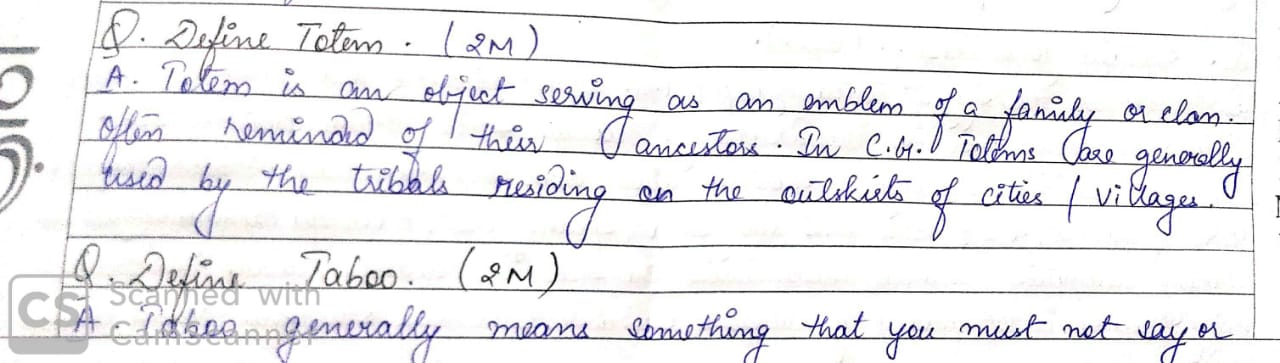 Q. Define Totem. (2M)
A. Totem is an object serving as an emblem of a family or clan.
often reminded of their ancestors. In C.G. Totems are generally
used by the tribals residing on the outskirts of cities / villages.
Q. Define Taboo. (2M)
A. Taboo generally means something that you must not say or
CS Scanned with
CamScanner